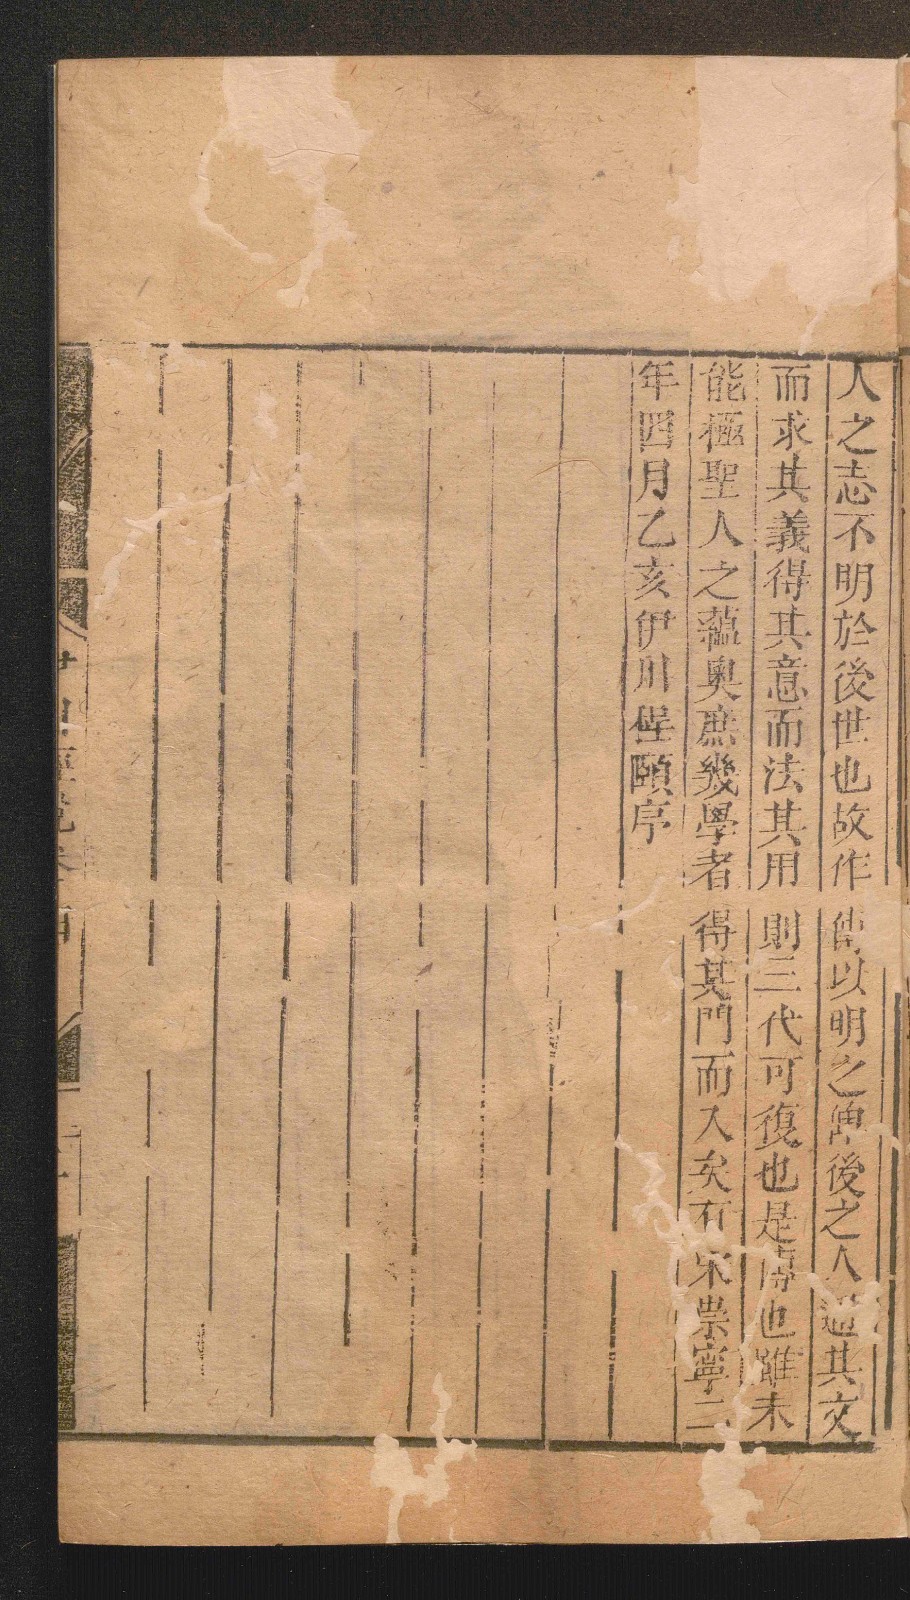 人之志不明於後世也故作傳以明之俾後之人通其文
而求其義得其意而法其用則三代可復也是傳也雖未
能極聖人之蘊奧庶幾學者得其門而入矣有宋崇寧二
年四月乙亥伊川程頤序